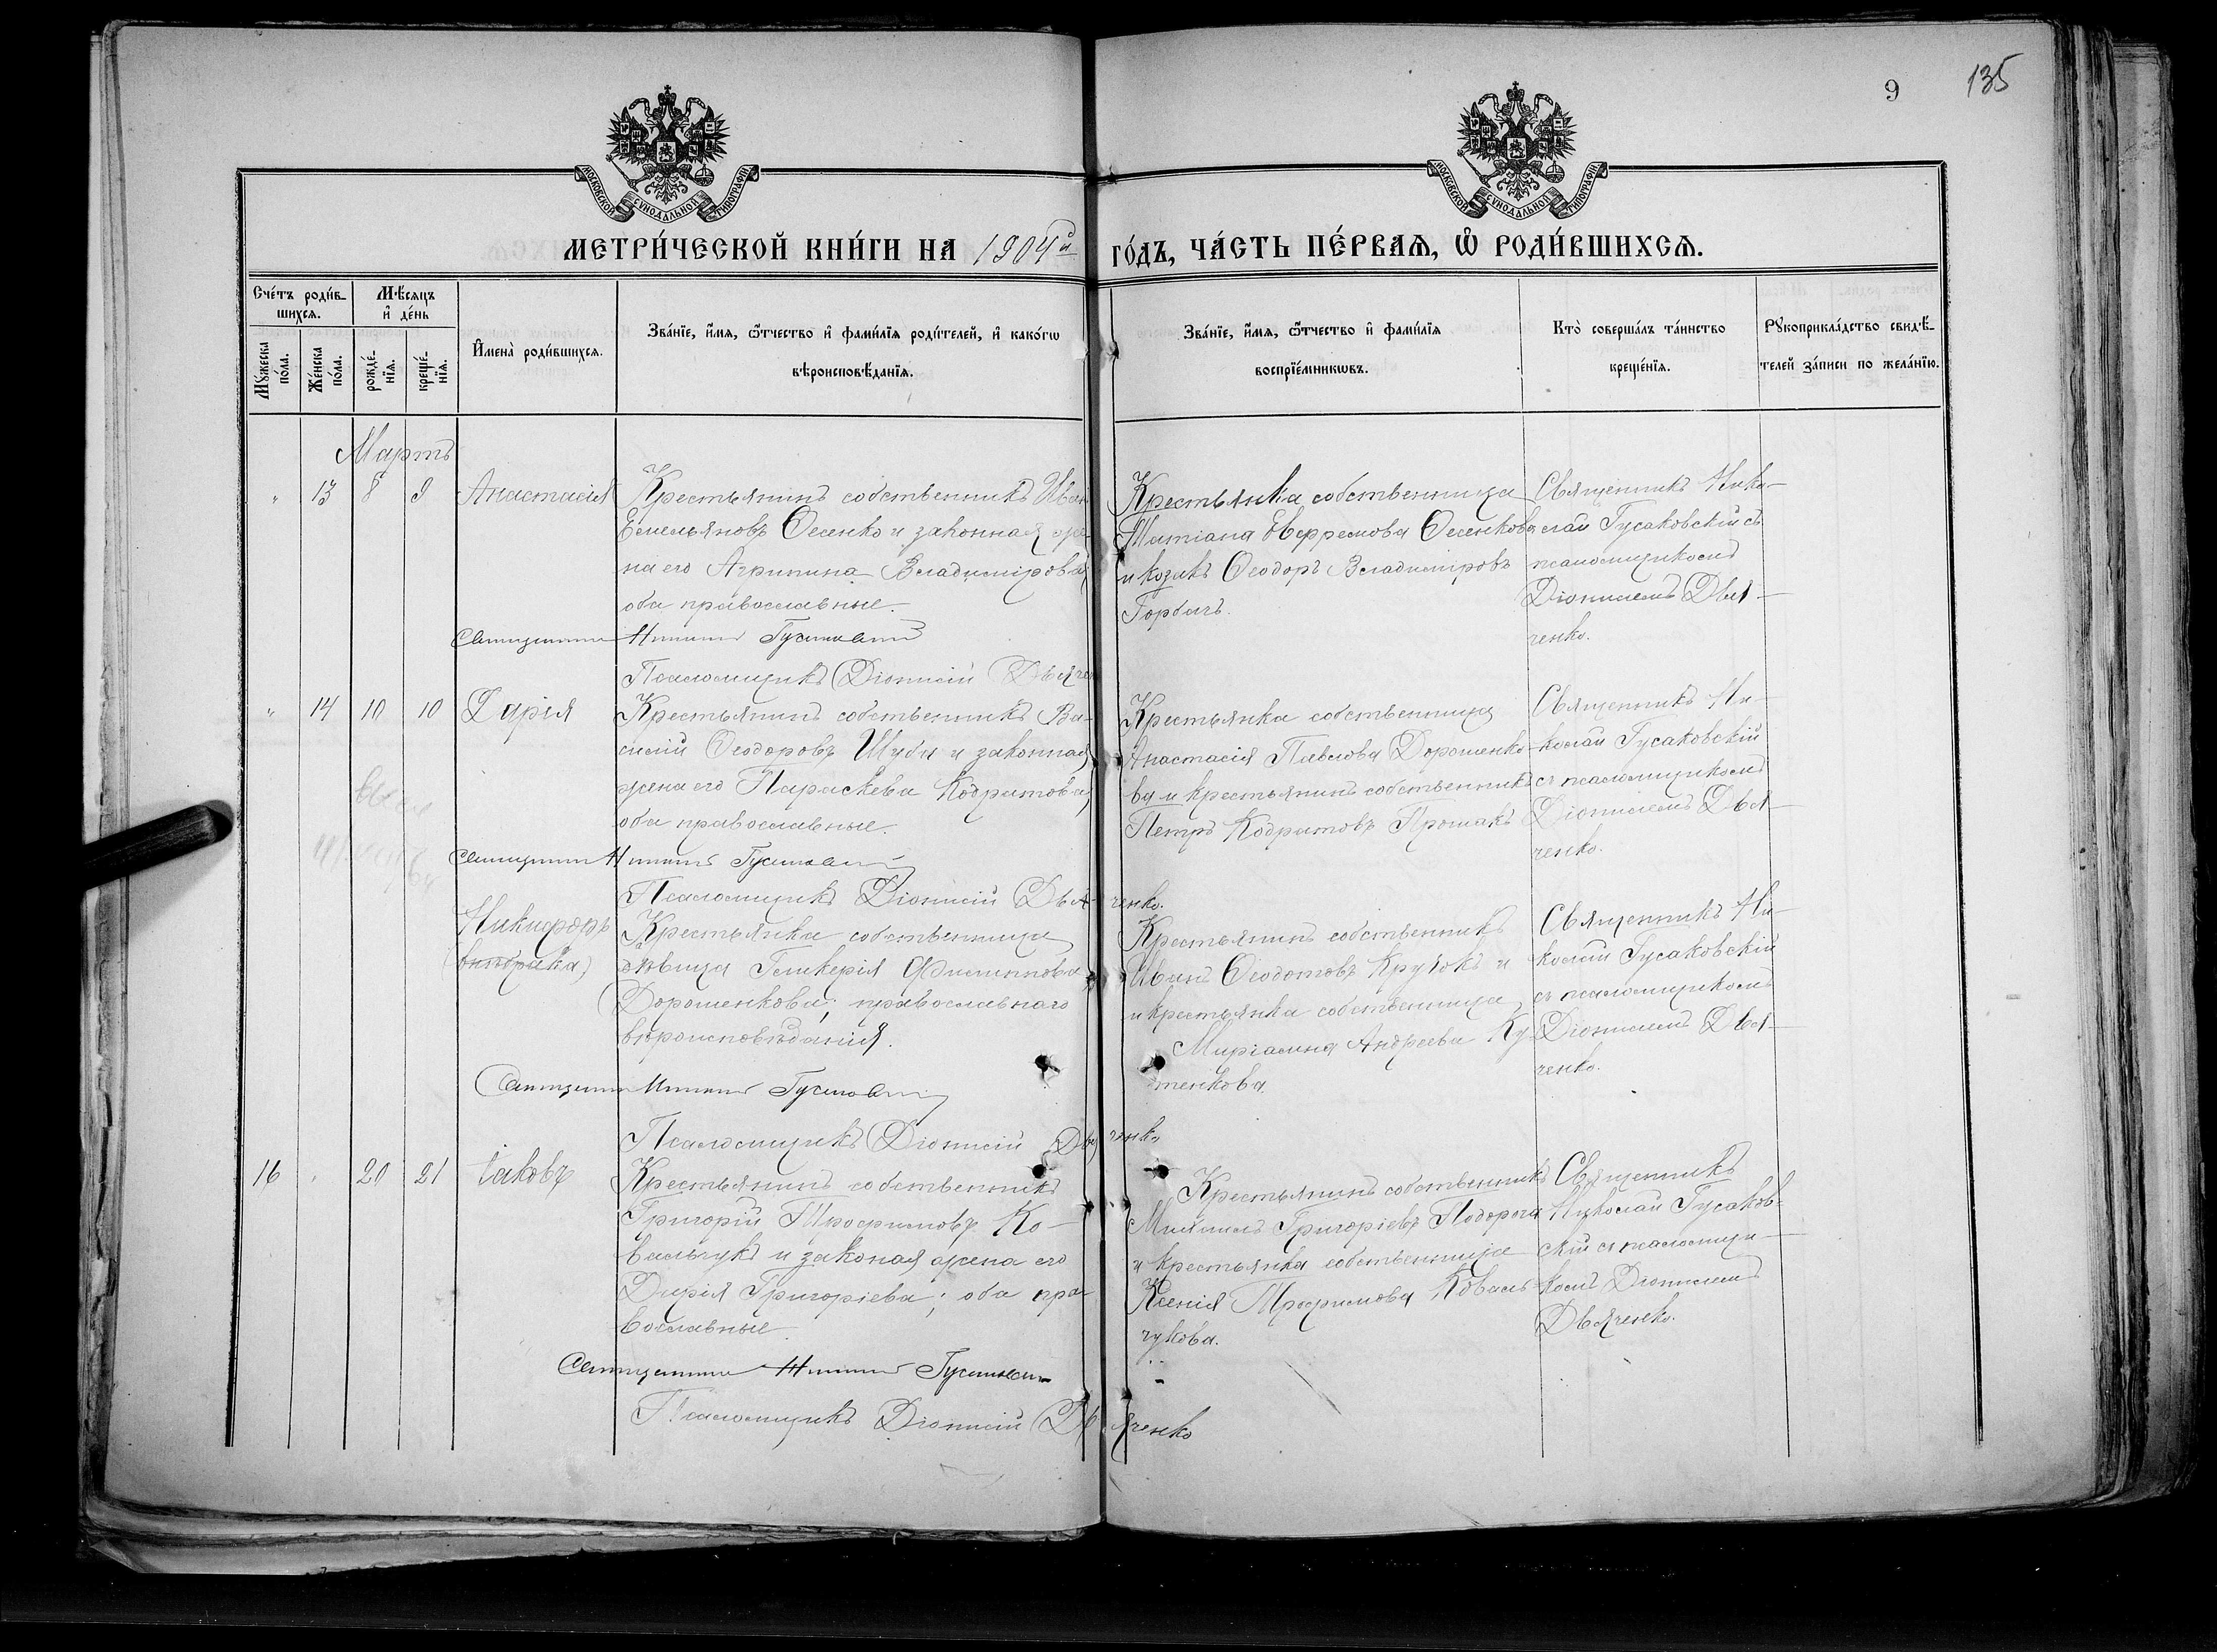 9
135
МОСКОВСКОЙ СѴНОДАЛЬНОЙ ТИПОГРАФІИ
МОСКОВСКОЙ СѴНОДАЛЬНОЙ ТИПОГРАФІИ
МЕТРИ́ЧЕСКОЙ КНИ́ГИ НА 1904й
ГО́ДЪ, ЧА́СТЬ ПЕ́РВАѦ, Ѽ РОДИ́ВШИХСѦ.
Сче́тъ роди́в-
шихсѧ.
Мѣ́сѧцъ
и҆ де́нь
Мꙋ́жеска
по́ла.
Же́нска
по́ла.
рожде́-
нїѧ.
креще́-
нїѧ.
И҆мена̀ роди́вшихсѧ.
Зва́нїе, и҆́мѧ, ѻ҆́тчество и҆ фами́лїѧ роди́телей, и҆ како́гѡ
вѣроисповѣ́данїѧ.
Зва́нїе, и҆́мѧ, ѻ҆́тчество и҆ фами́лїѧ
воспрїе́мникѡвъ.
Кто̀ соверша́лъ та́инство
креще́нїѧ.
Рꙋкоприкла́дство свидѣ́-
телей за́писи по жела́нїю.
Мартъ
" 13 8 9 Анастасія
Крестьянинъ собственникъ Иван
Емельяновъ Осенко и законная же-
на его Агрипина Владимірова,
оба православные.
Священникъ Николай Гусаковскій
Псаломщикъ Діонисій Дьячен
Крестьянка собственница
Татіана Евфремова Осенкова
и козакъ Ѳеодоръ Владиміровъ
Горбачъ.
Священникъ Нико-
лай Гусаковскій съ
псаломщикомъ
Діонисіемъ Дья-
ченко.
" 14 10 10 Дарія
Крестьянинъ собственникъ Ва-
силій Ѳеодоровъ Шуба и законная
жена его Параскева Кодратова,
оба православные.
Священникъ Николай Гусаковскій
Псаломщикъ Діонисій Дья-
ченко.
Крестьянка собственница
Анастасія Павлова Дорошенко-
ва и крестьянинъ собственникъ
Петръ Кодратовъ Прошакъ
Священникъ Ни-
колай Гусаковскій
съ псаломщикомъ
Діонисіемъ Дья-
ченко.
Никифоръ
Крестьянка собственница
дѣвица Гликерія Филиппова
Дорошенкова; православнаго
вѣроисповѣданія.
Священникъ Николай Гусаковскій
Псаломщикъ Діонисій Дья
ченко
Крестьянинъ собственникъ
Иванъ Ѳеодотовъ Кручокъ и
и крестьянка собственница
Маріамна Андреева Ку-
тенкова.
Священникъ Ни-
колай Гусаковскій
съ псаломщикомъ
Діонисіемъ Дья-
ченко.
16 " 20 21 Іаковъ
Крестьянинъ собственникъ
Григорій Трофимовъ Ко-
вальчукъ и законая жена его
Дарія Григоріева; оба пра-
вославные.
Священникъ Николай Гусаковскій
Псаломщикъ Діонисій Дь
яченко
Крестьянинъ собственникъ
Михаилъ Григоріевъ Подорога
и крестьянка собственница
Ксенія Трофимова Коваль-
чукова.
Священникъ
Николай Гусаков-
скій съ псаломщи-
комъ Діонисіемъ
Дьяченко.